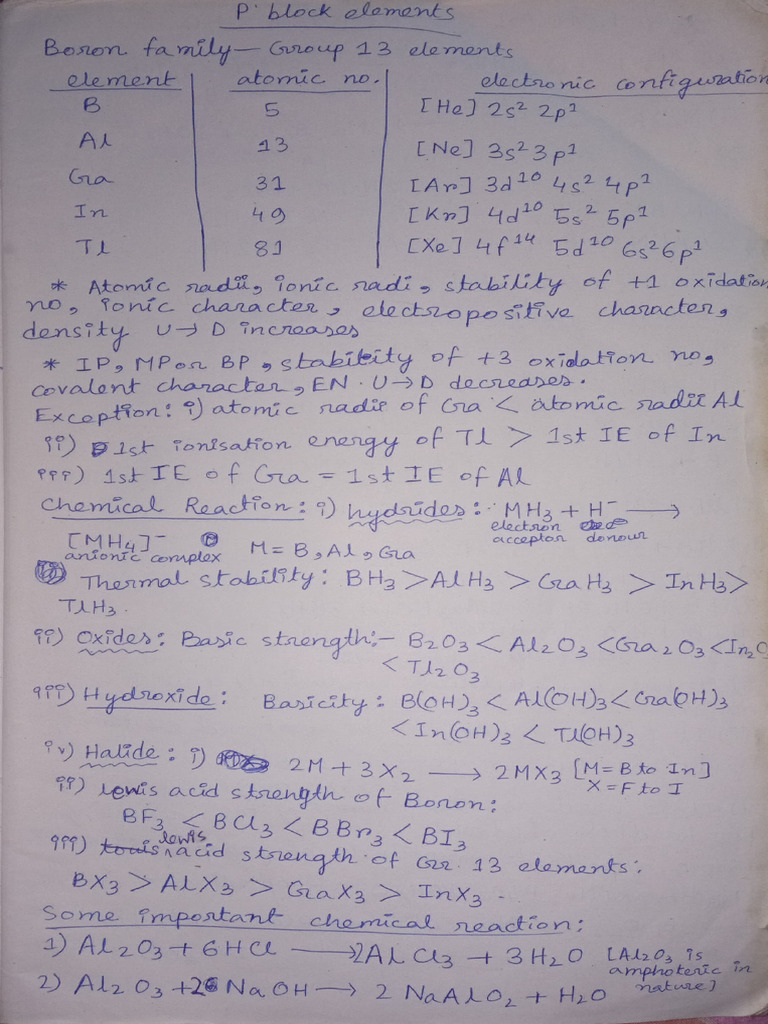 P' block elements
Boron family — Group 13 elements
element | atomic no. | electronic configuration
B | 5 | [He] 2s² 2p¹
Al | 13 | [Ne] 3s² 3p¹
Ga | 31 | [Ar] 3d¹⁰ 4s² 4p¹
In | 49 | [Kr] 4d¹⁰ 5s² 5p¹
Tl | 81 | [Xe] 4f¹⁴ 5d¹⁰ 6s² 6p¹
* Atomic radii, ionic radi, stability of +1 oxidation
no, ionic character, electropositive character,
density U → D increases
* IP, MP or BP, stability of +3 oxidation no,
covalent character, EN. U → D decreases.
Exception: i) atomic radii of Ga < atomic radii Al
ii) 1st ionisation energy of Tl > 1st IE of In
iii) 1st IE of Ga = 1st IE of Al
Chemical Reaction: i) hydrides: MH₃ + H⁻ ⟶
electron acceptor donour
[MH₄]⁻ M = B, Al, Ga
anionic complex
Thermal stability: BH₃ > AlH₃ > GaH₃ > InH₃ >
TlH₃.
ii) Oxides: Basic strength:- B₂O₃ < Al₂O₃ < Ga₂O₃ < In₂O
< Tl₂O₃
iii) Hydroxide: Basicity: B(OH)₃ < Al(OH)₃ < Ga(OH)₃
< In(OH)₃ < Tl(OH)₃
iv) Halide: i) 2M + 3X₂ ⟶ 2MX₃ [M = B to In]
X = F to I
ii) lewis acid strength of Boron:
BF₃ < BCl₃ < BBr₃ < BI₃
iii) lewis acid strength of Gr. 13 elements:
BX₃ > AlX₃ > GaX₃ > InX₃.
Some important chemical reaction:
1) Al₂O₃ + 6HCl ⟶ 2AlCl₃ + 3H₂O [Al₂O₃ is
amphoteric in
nature]
2) Al₂O₃ + 2NaOH ⟶ 2 NaAlO₂ + H₂O